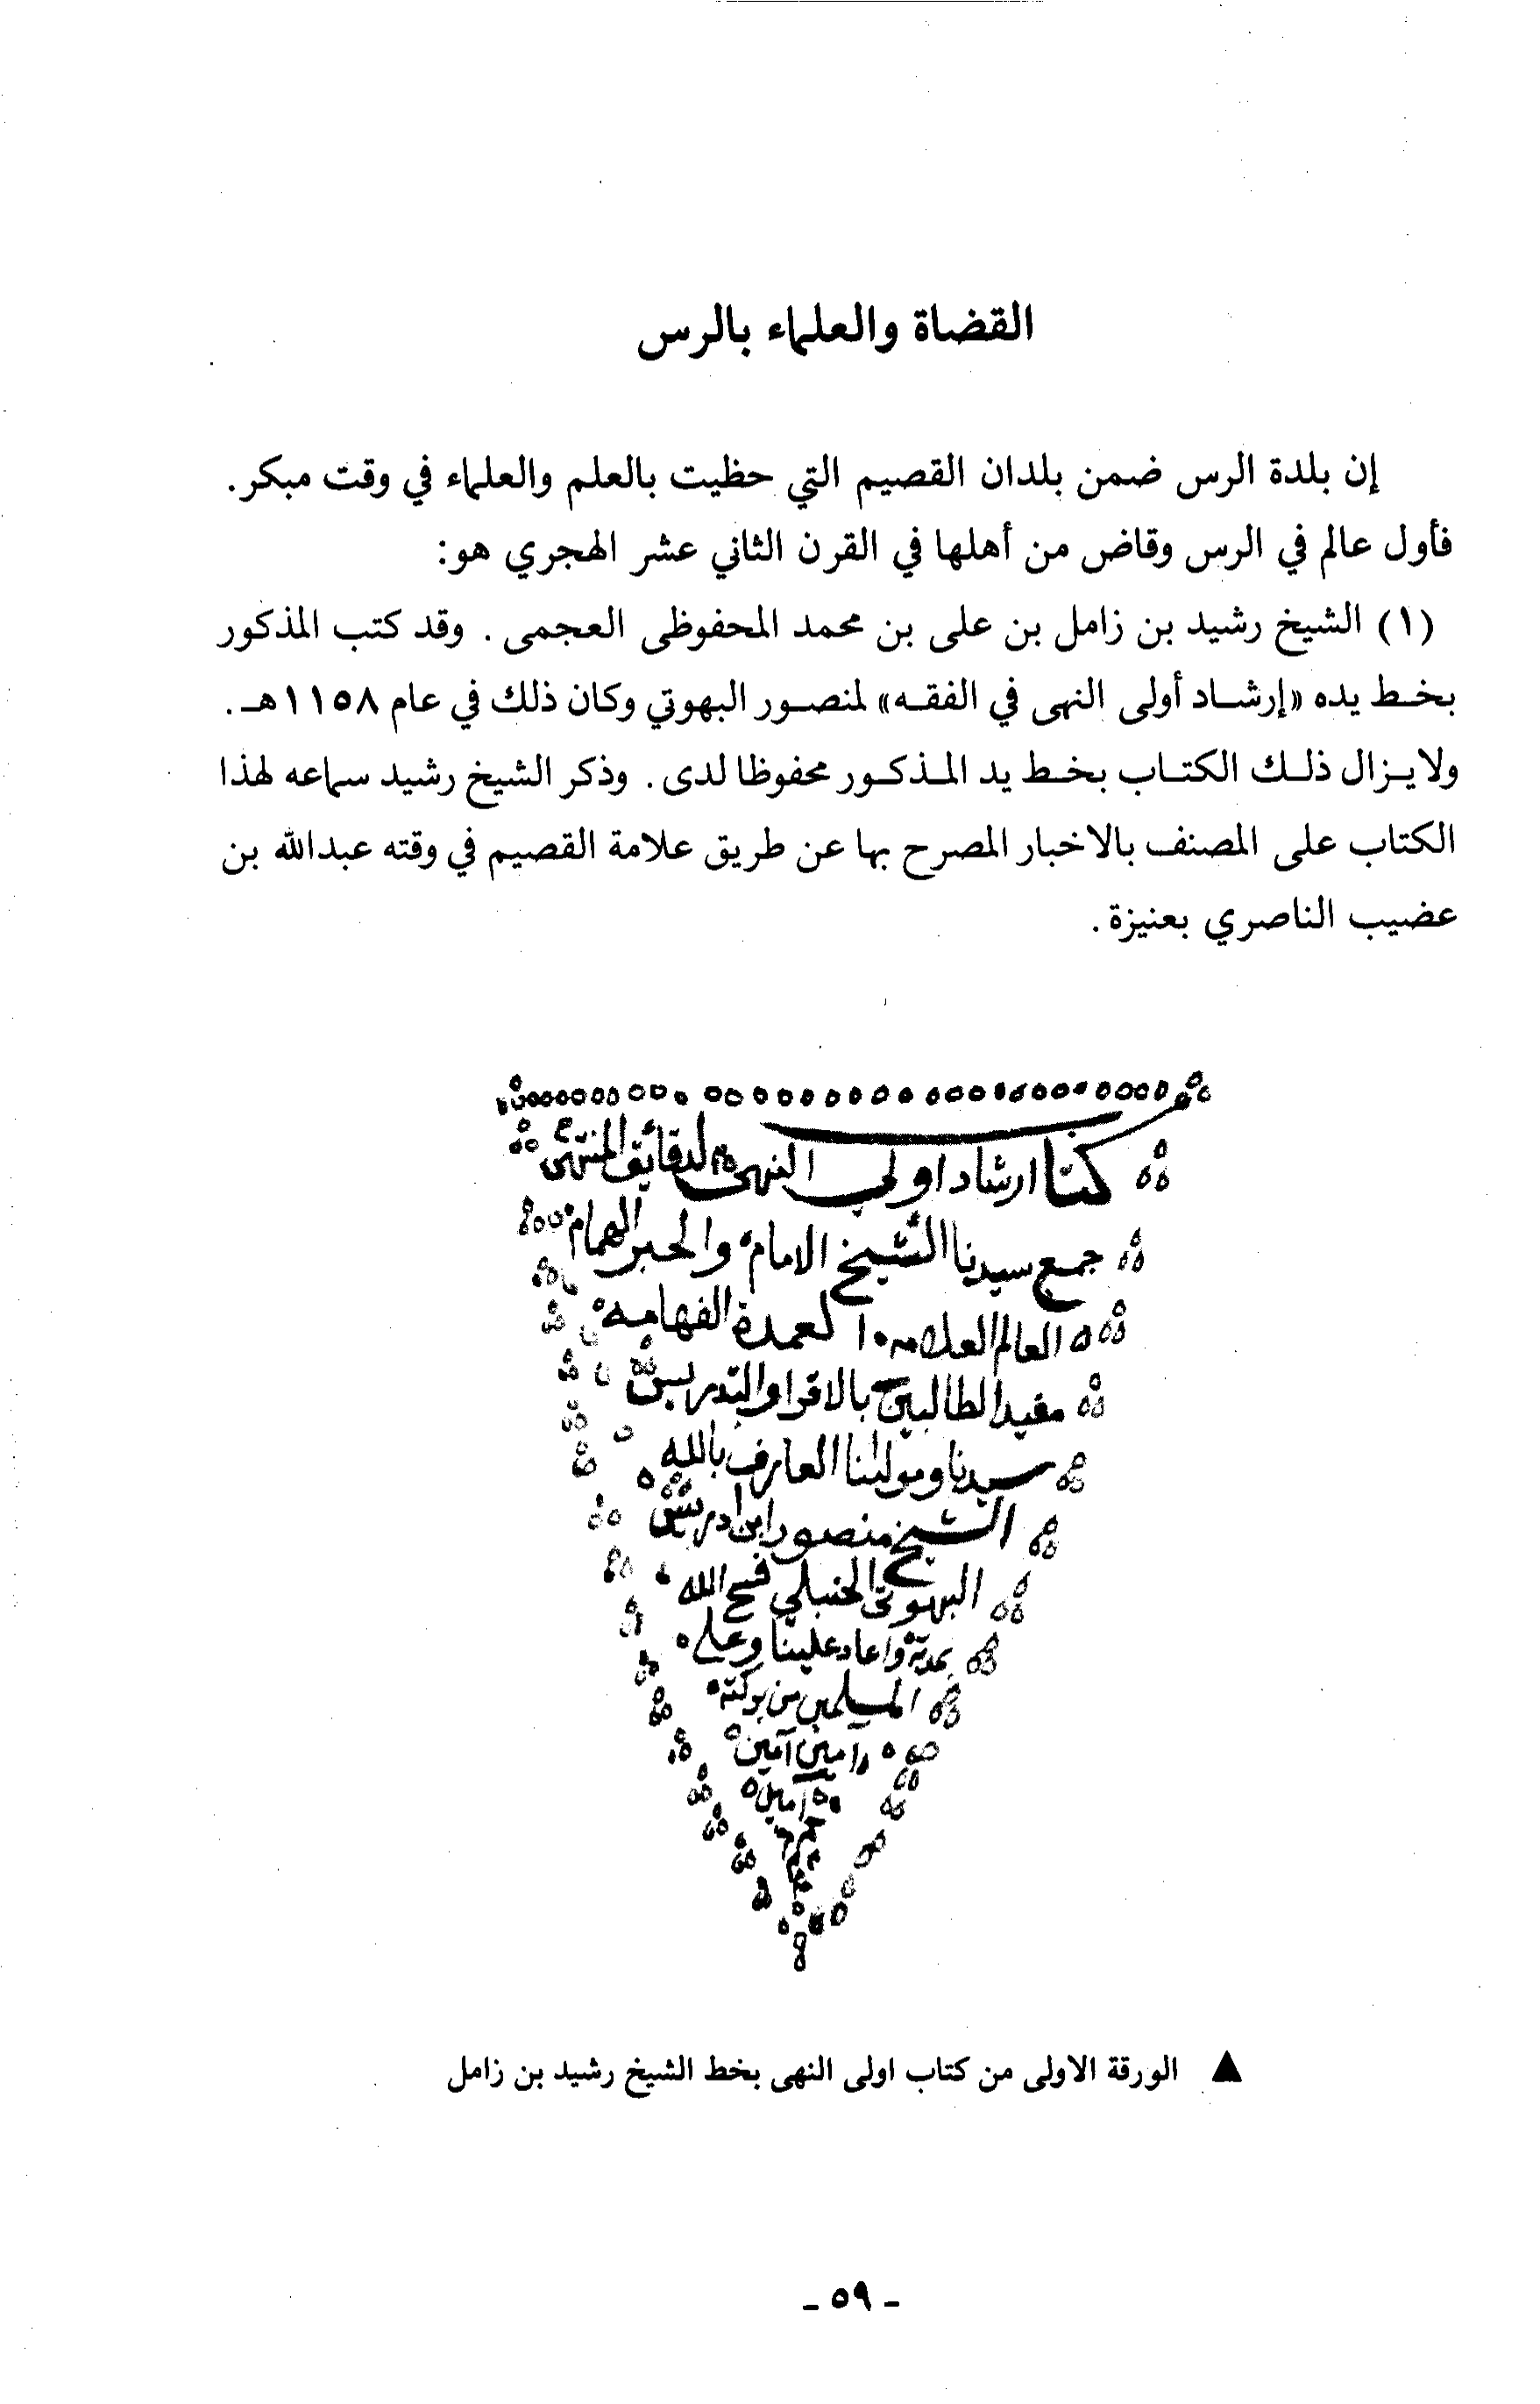 القضاة والعلماء بالرس
إن بلدة الرس ضمن بلدان القصيم التي حظيت بالعلم والعلماء في وقت مبكر.
فأول عالم في الرس وقاض من أهلها في القرن الثاني عشر الهجري هو:
(١) الشيخ رشيد بن زامل بن على بن محمد المحفوظى العجمى. وقد كتب المذكور
بخط يده «إرشاد أولى النهى في الفقه» لمنصور البهوتي وكان ذلك في عام ١١٥٨هـ.
ولايزال ذلك الكتاب بخط يد المذكور محفوظا لدى. وذكر الشيخ رشيد سماعه لهذا
الكتاب على المصنف بالاخبار المصرح بها عن طريق علامة القصيم في وقته عبدالله بن
عضيب الناصري بعنيزة.
كتاب ارشاد اولي النهى لدقايق المنتهى
جمع سيدنا الشيخ الامام والحبر الهمام
العالم العلامه العمدة الفهامه
مفيد الطالبين بالاقرا والتدريس
سيدنا ومولينا العارف بالله
الشيخ منصور ابن ادريس
البهوتي الحنبلي فسح الله
بمدته واعاد علينا وعلى
المسلمين من بركته
امين آمين
آمين
▲ الورقة الاولى من كتاب اولى النهى بخط الشيخ رشيد بن زامل
- ٥٩ -